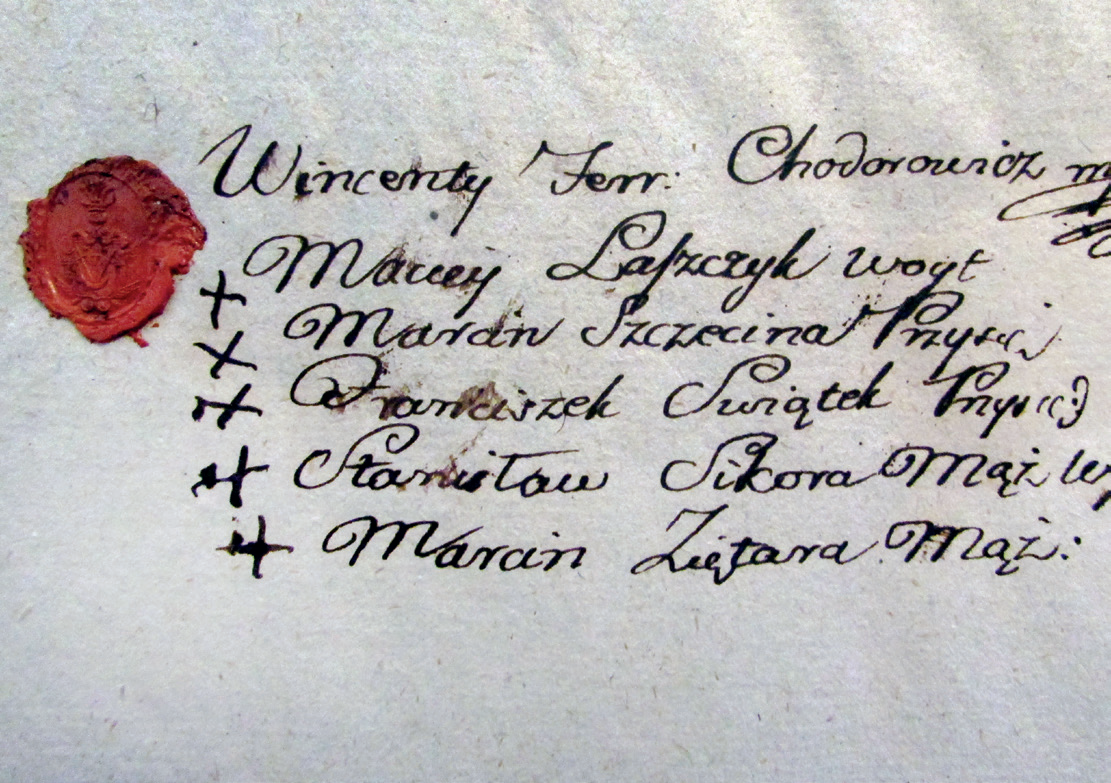 Wincenty Ferr: Chodorowicz
+ Maciey Laſzczyk woyt
+ Marcin Szczecina
+ Franciszek Swiątek
+ Stanisław Sikora Mąż
+ Marcin Ziętara Mąż: